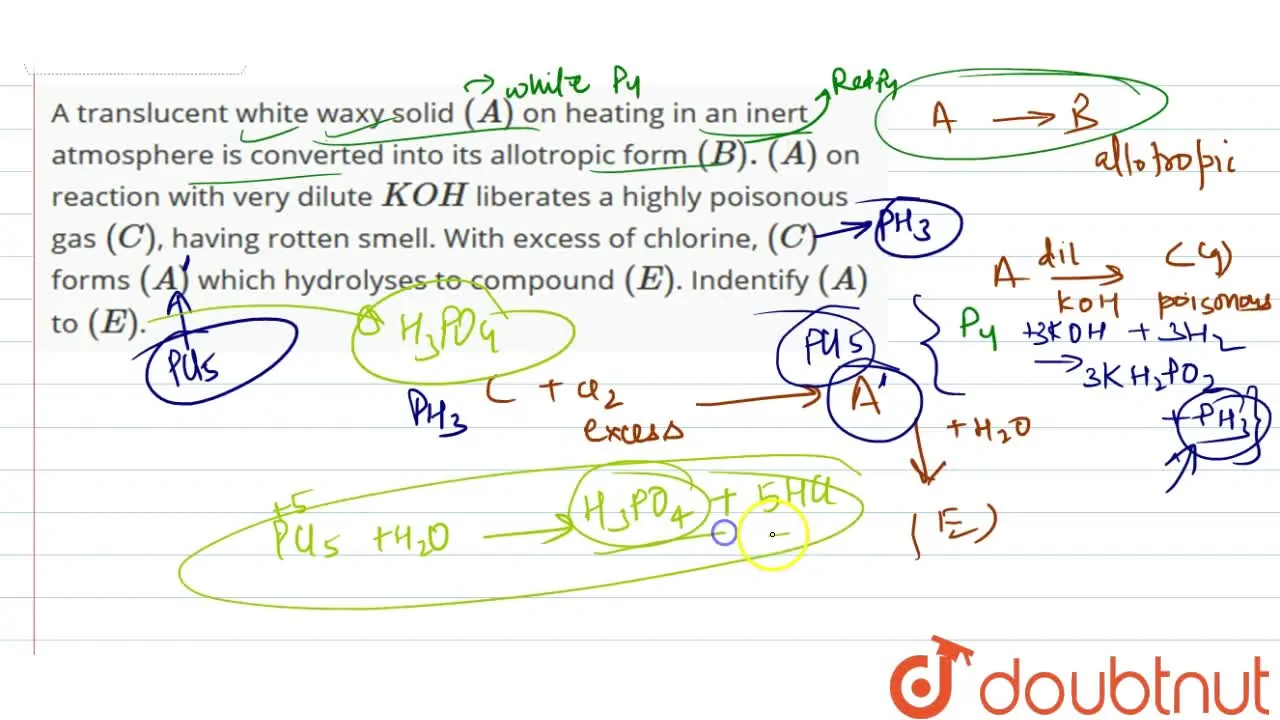 → white P4
Red P4
A translucent white waxy solid (A) on heating in an inert
atmosphere is converted into its allotropic form (B). (A) on
reaction with very dilute KOH liberates a highly poisonous
gas (C), having rotten smell. With excess of chlorine, (C)
forms (A) which hydrolyses to compound (E). Indentify (A)
to (E).
A → B
allotropic
PH3
A dil KOH → C(g)
poisonous
P4 + 3KOH + 3H2
→ 3KH2PO2
+ PH3
A'
PCl5
H3PO4
PCl5
C + Cl2 → A'
PH3
excess
+ H2O
(E)
+5
PCl5 + H2O → H3PO4 + 5HCl
doubtnut